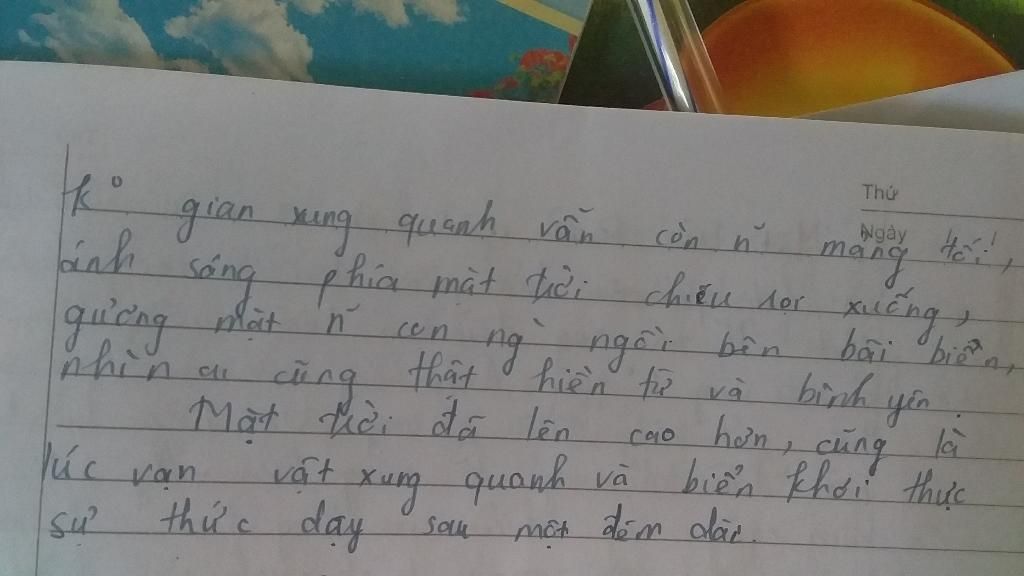 Thứ
Ngày
k° gian xung quanh vẫn còn n~ mảng tối,
ánh sáng phía mặt trời chiếu rọi xuống,
gương mặt n~ con ng` ngồi bên bãi biển,
nhìn ai cũng thật hiền từ và bình yên.
Mặt trời đã lên cao hơn, cũng là
lúc vạn vật xung quanh và biển khơi thực
sự thức dạy sau một đêm dài.